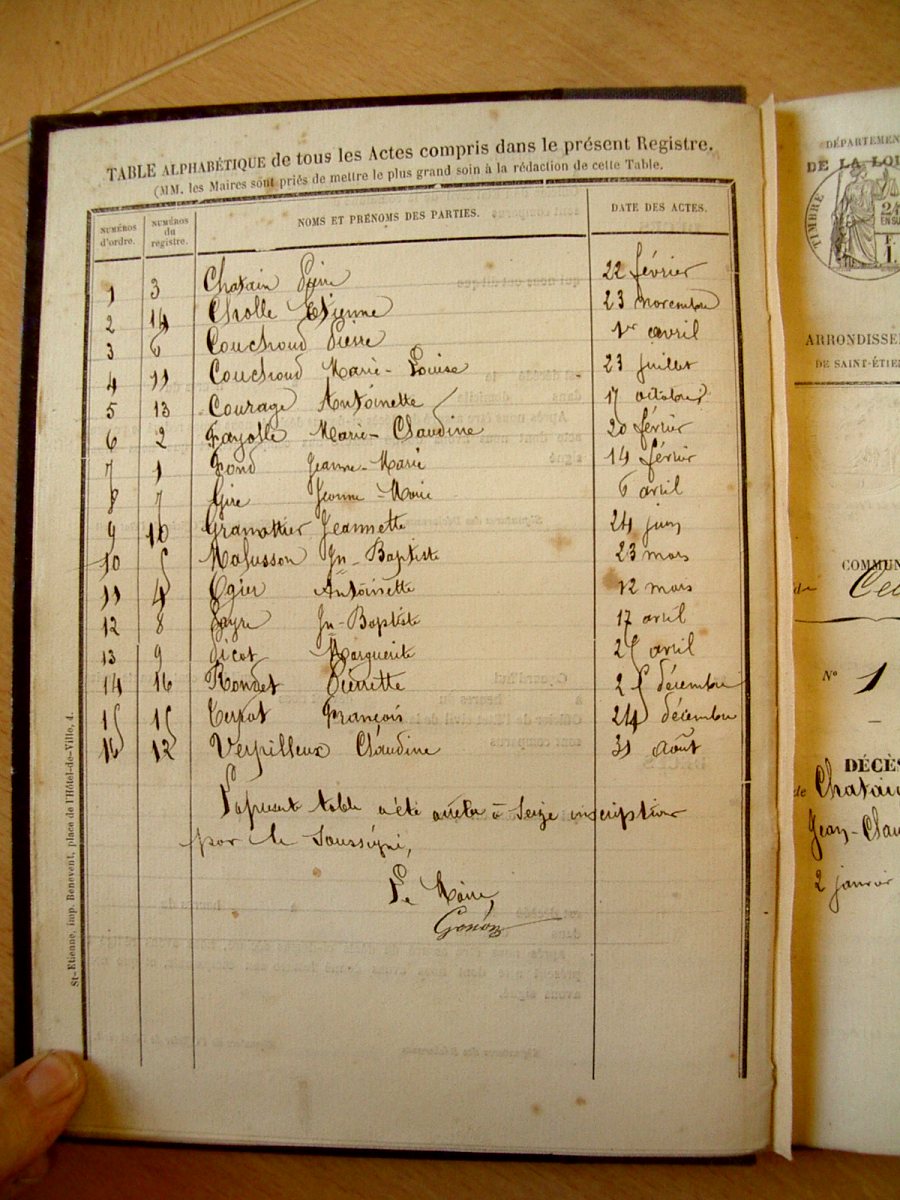 TABLE ALPHABÉTIQUE de tous les Actes compris dans le présent Registre.
(MM. les Maires sont priés de mettre le plus grand soin à la rédaction de cette Table.
NUMÉROS d'ordre. NUMÉROS du registre. NOMS ET PRÉNOMS DES PARTIES. DATE DES ACTES.
1 3 Chatain 22 février
2 14 Cholle Etienne 23 novembre
3 6 Couchoud Pierre 1er avril
4 11 Couchoud Marie-Louise 23 juillet
5 13 Courage Antoinette 17 octobre
6 2 Fayolle Marie-Claudine 20 février
7 1 Fond Jeanne-Marie 14 février
8 7 Gire Jeanne-Marie 6 avril
9 10 Gramottier Jeannette 24 juin
10 5 Malusson Jn-Baptiste 23 mars
11 4 Ogier Antoinette 12 mars
12 8 Jn-Baptiste 17 avril
13 9 Picot Marguerite 25 avril
14 16 Rondet Pierrette 25 décembre
15 15 Terrat François 24 décembre
16 12 Verpilleux Claudine 31 août
La présente table a été arrêtée à seize inscriptions
par le soussigné,
Le Maire,
Gonon
St-Etienne, imp. Benevent, place de l'Hôtel-de-Ville, 4.
DÉPARTEMEN
DE LA LOI
TIMBRE
ARRONDISSE
DE SAINT-ÉTIE
COMMUN
de Cel
N° 1
DÉCÈS
de Chatain
Jean-Clau
2 janvier